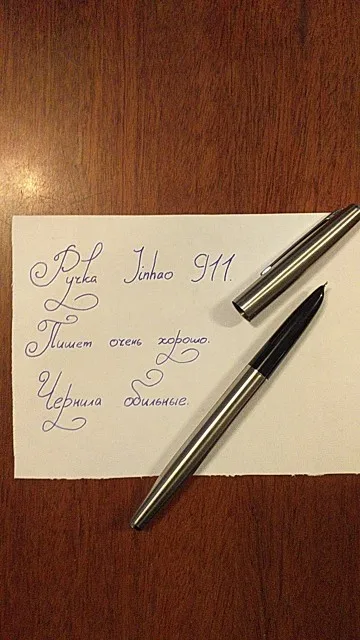 Ручка Jinhao 911.
Пишет очень хорошо.
Чернила обильные.